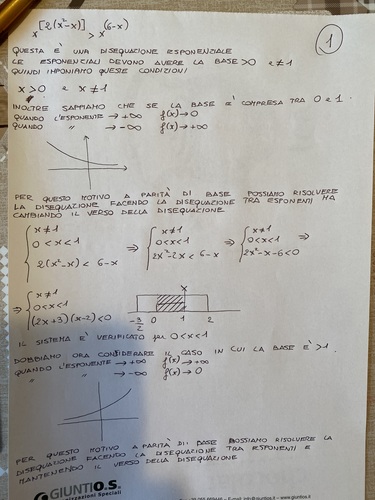 x^[2(x²-x)] > x^(6-x)
1
QUESTA È UNA DISEQUAZIONE ESPONENZIALE
LE ESPONENZIALI DEVONO AVERE LA BASE >0 e ≠1
QUINDI IMPONIAMO QUESTE CONDIZIONI
x>0 e x≠1
INOLTRE SAPPIAMO CHE SE LA BASE E' COMPRESA TRA 0 e 1.
QUANDO L'ESPONENTE → +∞ f(x) → 0
QUANDO " → -∞ f(x) → +∞
PER QUESTO MOTIVO A PARITÀ DI BASE POSSIAMO RISOLVERE
LA DISEQUAZIONE FACENDO LA DISEQUAZIONE TRA ESPONENTI MA
CAMBIANDO IL VERSO DELLA DISEQUAZIONE.
{ x≠1 ⇒ { x≠1 ⇒ { x≠1
0<x<1 0<x<1 0<x<1 ⇒
2(x²-x) < 6-x 2x²-2x < 6-x 2x²-x-6<0
⇒ { x≠1
0<x<1
(2x+3)(x-2)<0
x
-3/2 0 1 2
IL SISTEMA E' VERIFICATO per 0<x<1
DOBBIAMO ORA CONSIDERARE IL CASO IN CUI LA BASE E' >1.
QUANDO L'ESPONENTE → +∞ f(x) → +∞
" " → -∞ f(x) → 0
PER QUESTO MOTIVO A PARITÀ DI BASE POSSIAMO RISOLVERE LA
DISEQUAZIONE FACENDO LA DISEQUAZIONE TRA ESPONENTI E
MANTENENDO IL VERSO DELLA DISEQUAZIONE
GIUNTI O.S.
Organizzazioni Speciali